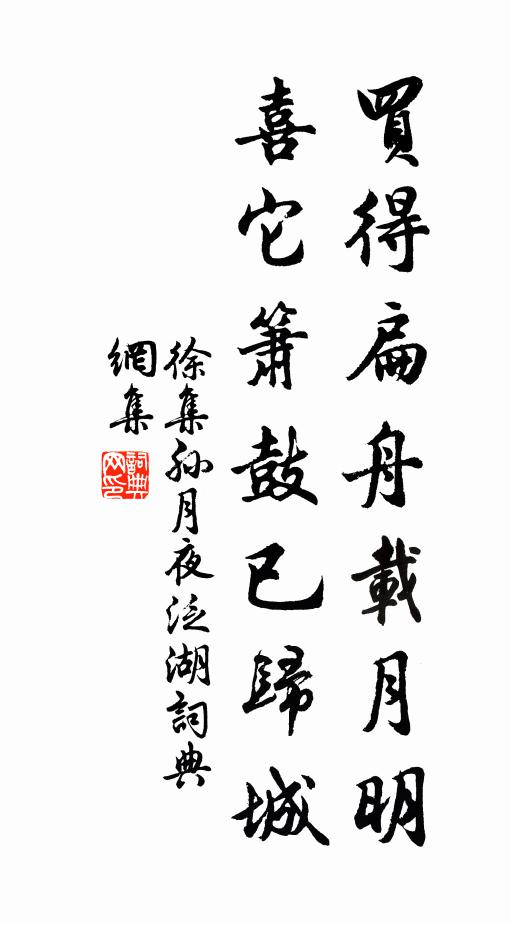 買得扁舟載月明
喜它簫鼓已歸城
徐集孫月夜泛湖詞典
網集
詞典
网印